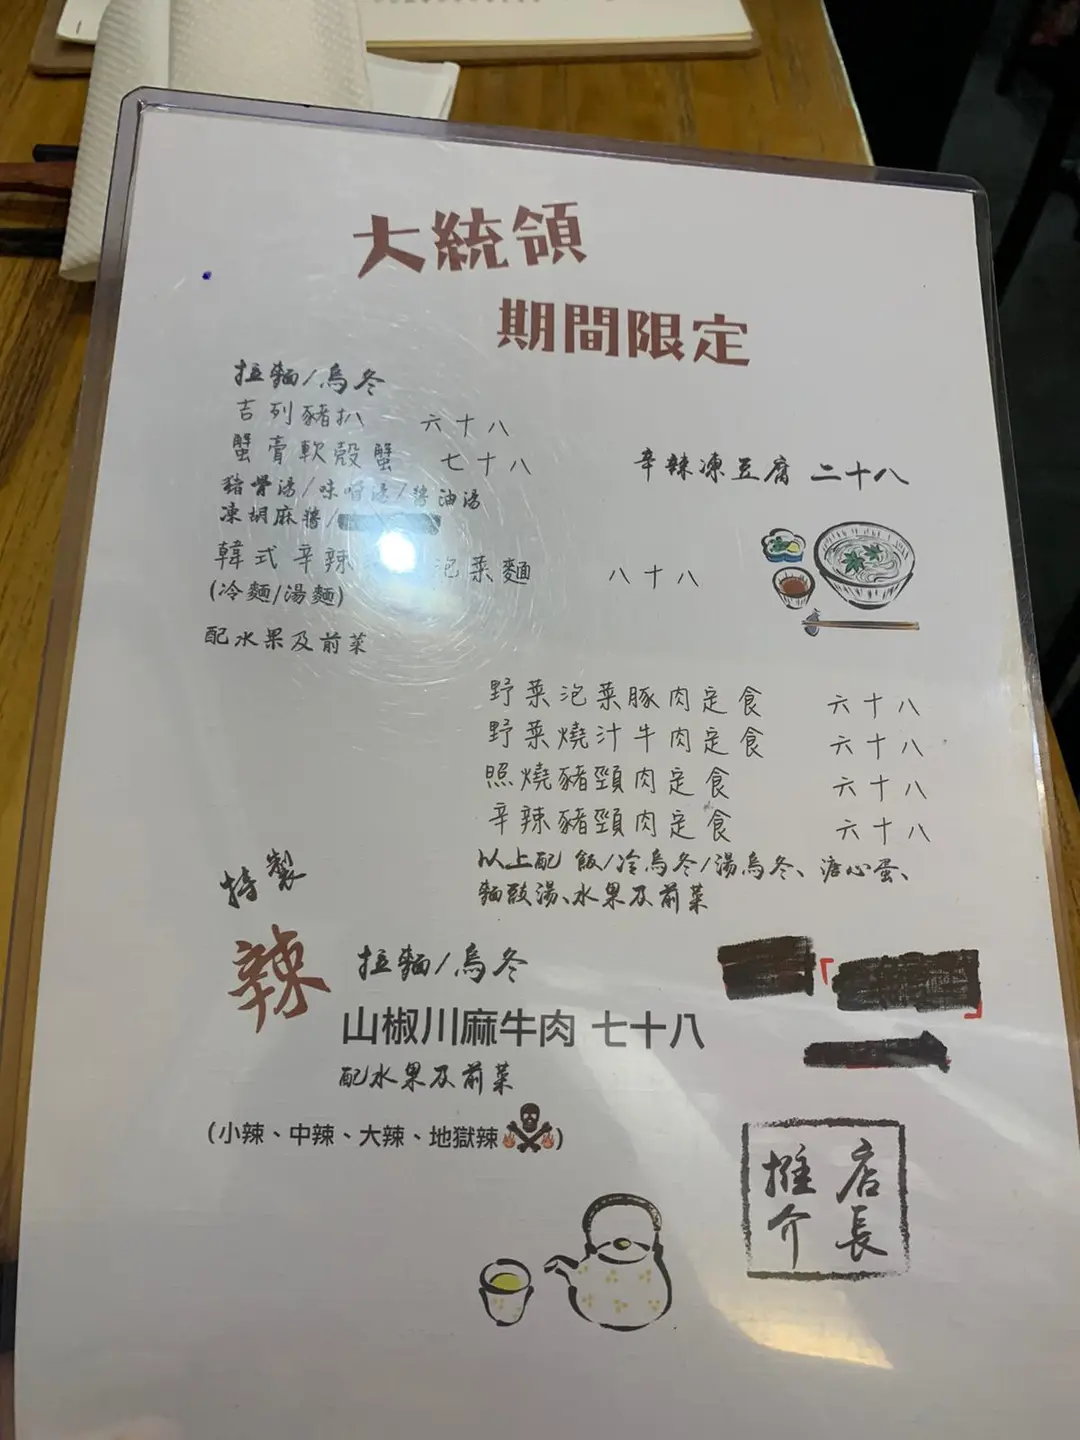 大統領
期間限定
拉麵/烏冬
吉列豬扒 六十八
蟹膏軟殼蟹 七十八
豬骨湯/味噌湯/醬油湯
凍胡麻醬/
韓式辛辣 泡菜麵 八十八
(冷麵/湯麵)
配水果及前菜
辛辣凍豆腐 二十八
野菜泡菜豚肉定食 六十八
野菜燒汁牛肉定食 六十八
照燒豬頸肉定食 六十八
辛辣豬頸肉定食 六十八
以上配 飯/冷烏冬/湯烏冬、溏心蛋、
麵豉湯、水果及前菜
特製
辣 拉麵/烏冬
山椒川麻牛肉 七十八
配水果及前菜
(小辣、中辣、大辣、地獄辣)
「 」
店長
推介